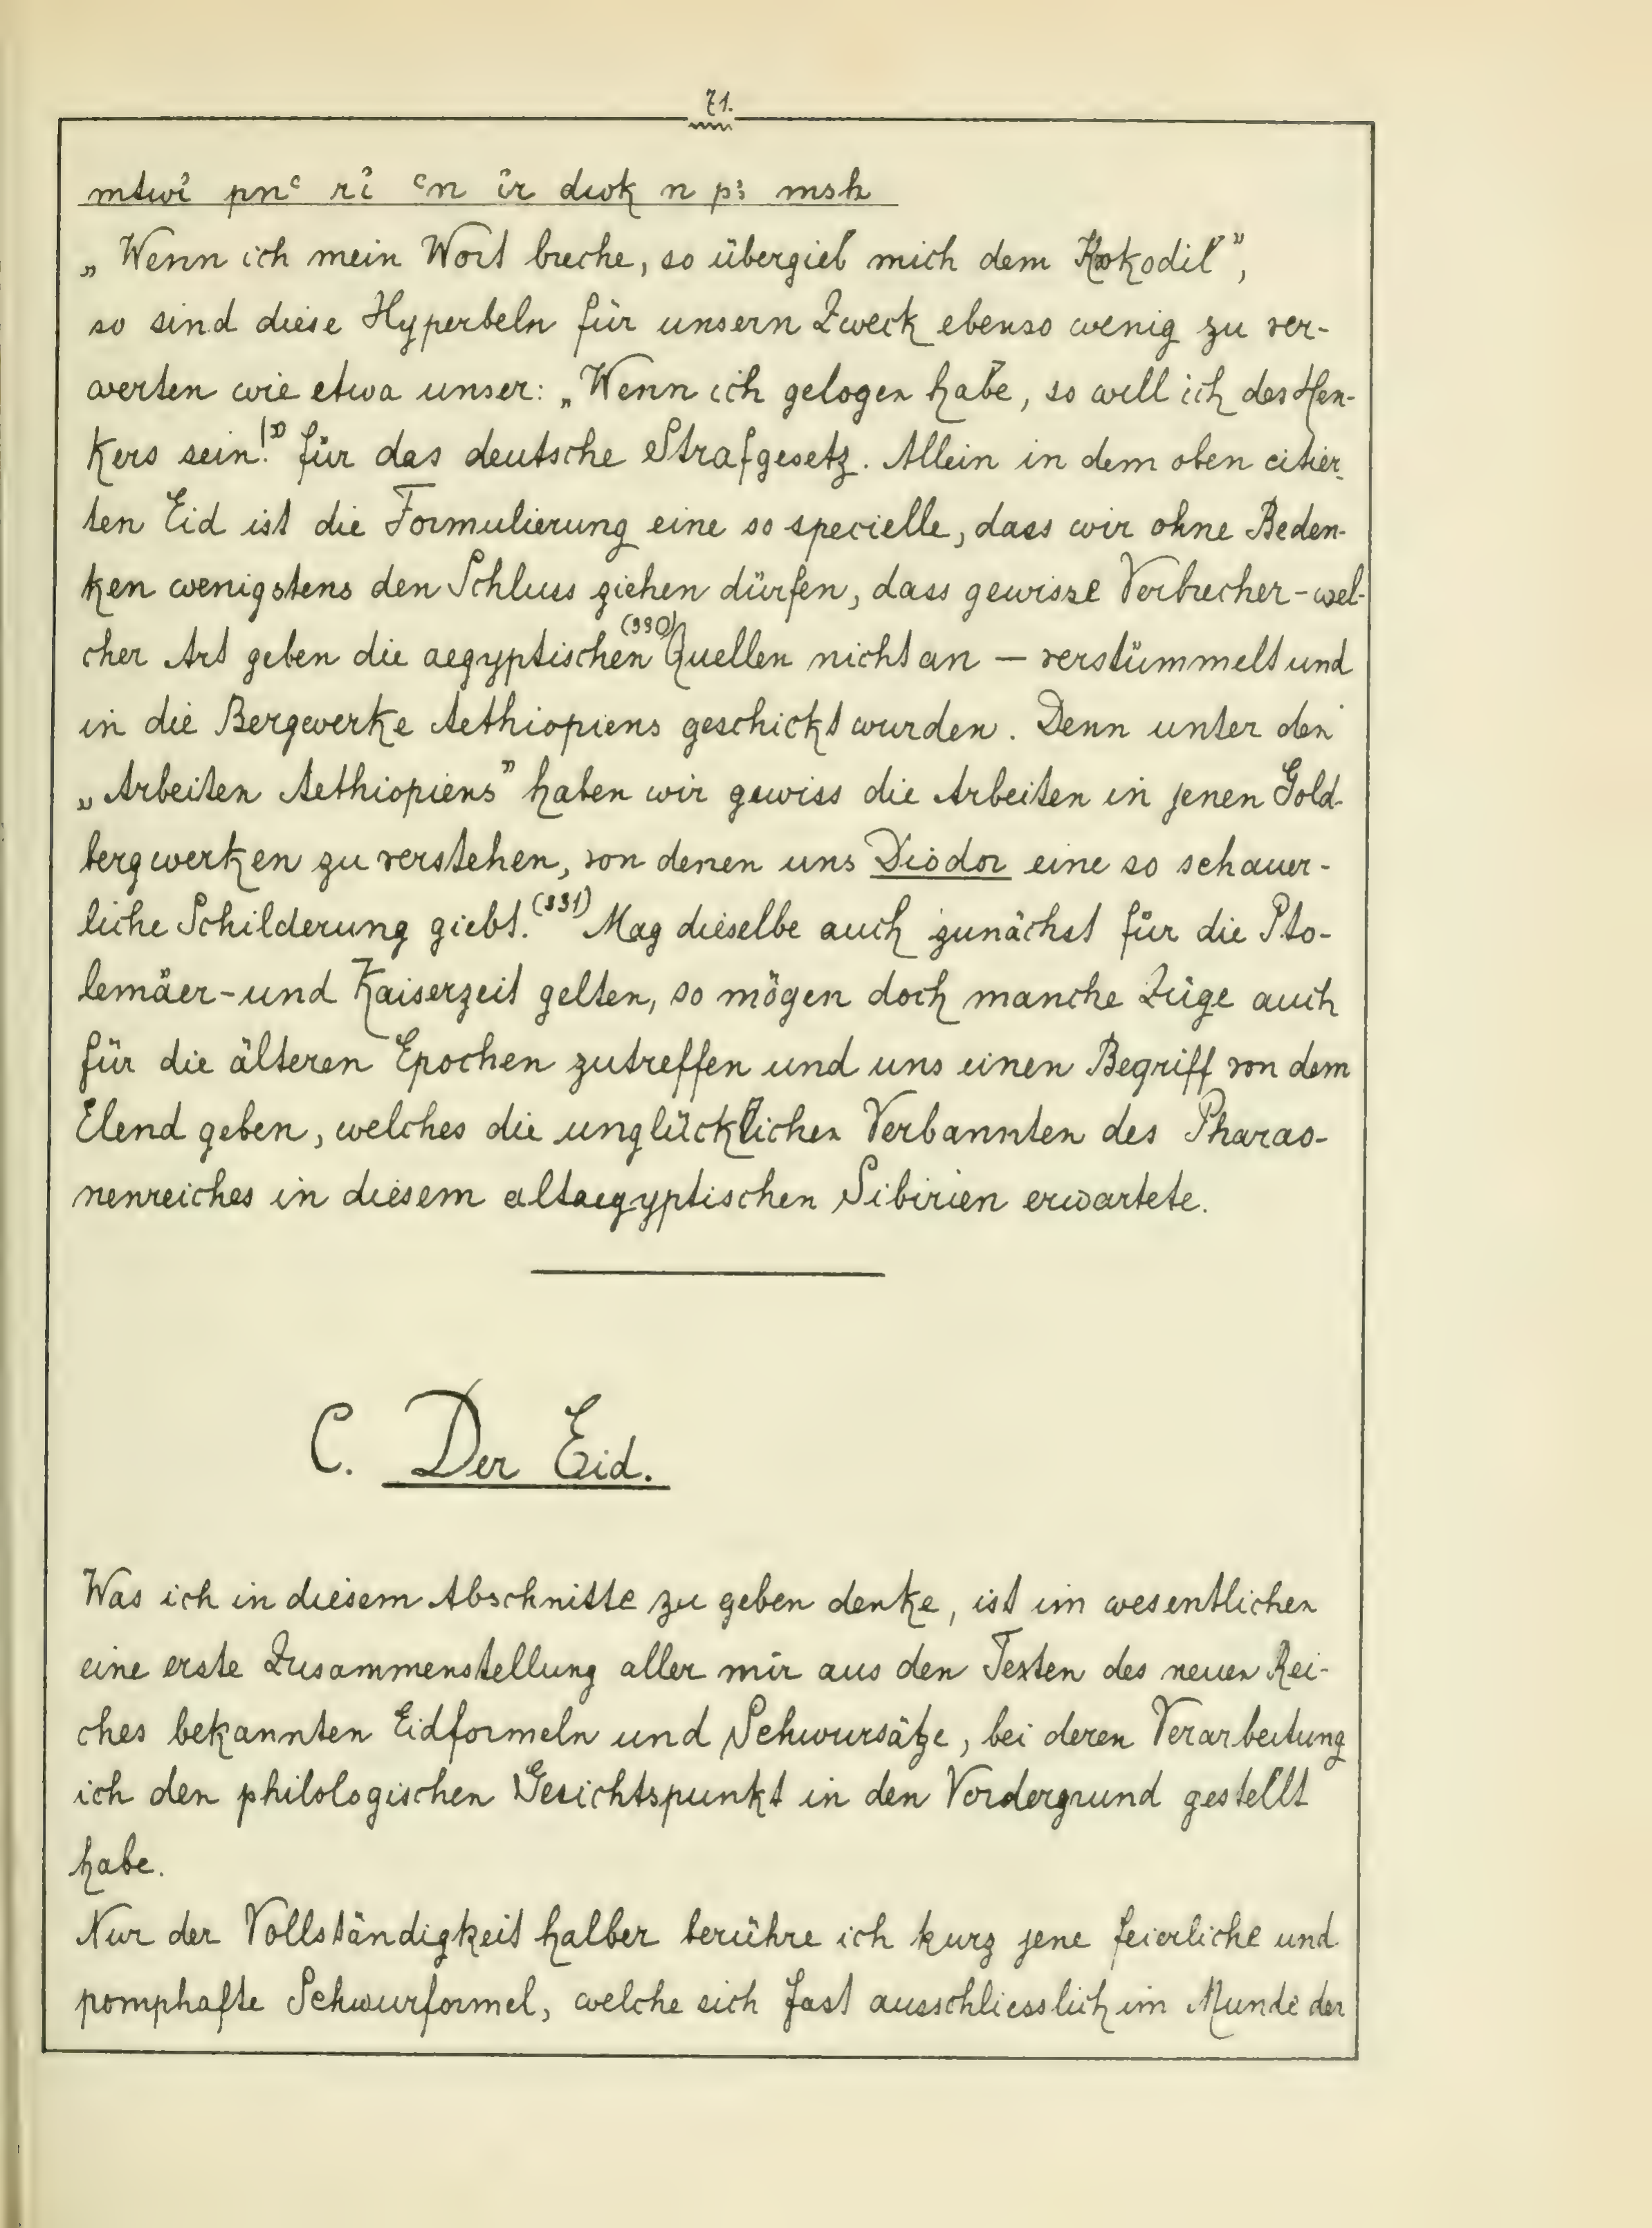 71.
mtwi̓ pnꜥ ri̓ ꜥn i̓r dwk n pꜣ msḥ
„Wenn ich mein Wort breche, so übergieb mich dem Krokodil”,
so sind diese Hyperbeln für unsern Zweck ebenso wenig zu ver-
werten wie etwa unser: „Wenn ich gelogen habe, so will ich des Hen-
kers sein!” für das deutsche Strafgesetz. Allein in dem oben citier-
ten Eid ist die Formulierung eine so specielle, dass wir ohne Beden-
ken wenigstens den Schluss ziehen dürfen, dass gewisse Verbrecher - wel-
cher Art geben die aegyptischen (330) Quellen nicht an — verstümmelt und
in die Bergwerke Aethiopiens geschickt wurden. Denn unter den
„Arbeiten Aethiopiens” haben wir gewiss die Arbeiten in jenen Gold-
bergwerken zu verstehen, von denen uns Diodor eine so schauer-
liche Schilderung giebt. (331) Mag dieselbe auch zunächst für die Pto-
lemäer- und Kaiserzeit gelten, so mögen doch manche Züge auch
für die älteren Epochen zutreffen und uns einen Begriff von dem
Elend geben, welches die unglücklichen Verbannten des Pharao-
nenreiches in diesem altaegyptischen Sibirien erwartete.
C. Der Eid.
Was ich in diesem Abschnitte zu geben denke, ist im wesentlichen
eine erste Zusammenstellung aller mir aus den Texten des neuen Rei-
ches bekannten Eidformeln und Schwursätze, bei deren Verarbeitung
ich den philologischen Gesichtspunkt in den Vordergrund gestellt
habe.
Nur der Vollständigkeit halber berühre ich kurz jene feierliche und
pomphafte Schwurformel, welche sich fast ausschliesslich im Munde der